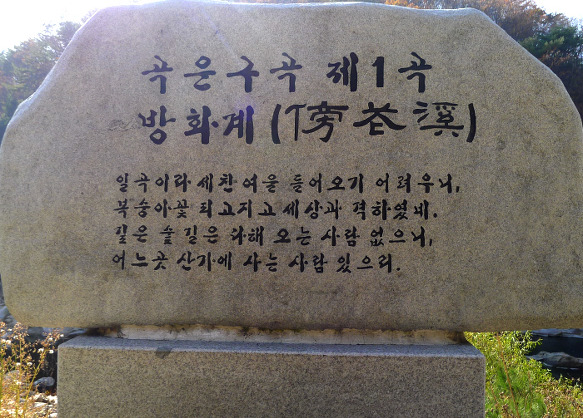 곡운구곡 제1곡
방화계(傍花溪)
일곡이라 세찬 여울 들어오기 어려우니,
복숭아꽃 피고지고 세상과 격하였네.
깊은 숲 길은 다해 오는 사람 없으니,
어느곳 산가에 사는 사람 있으리.